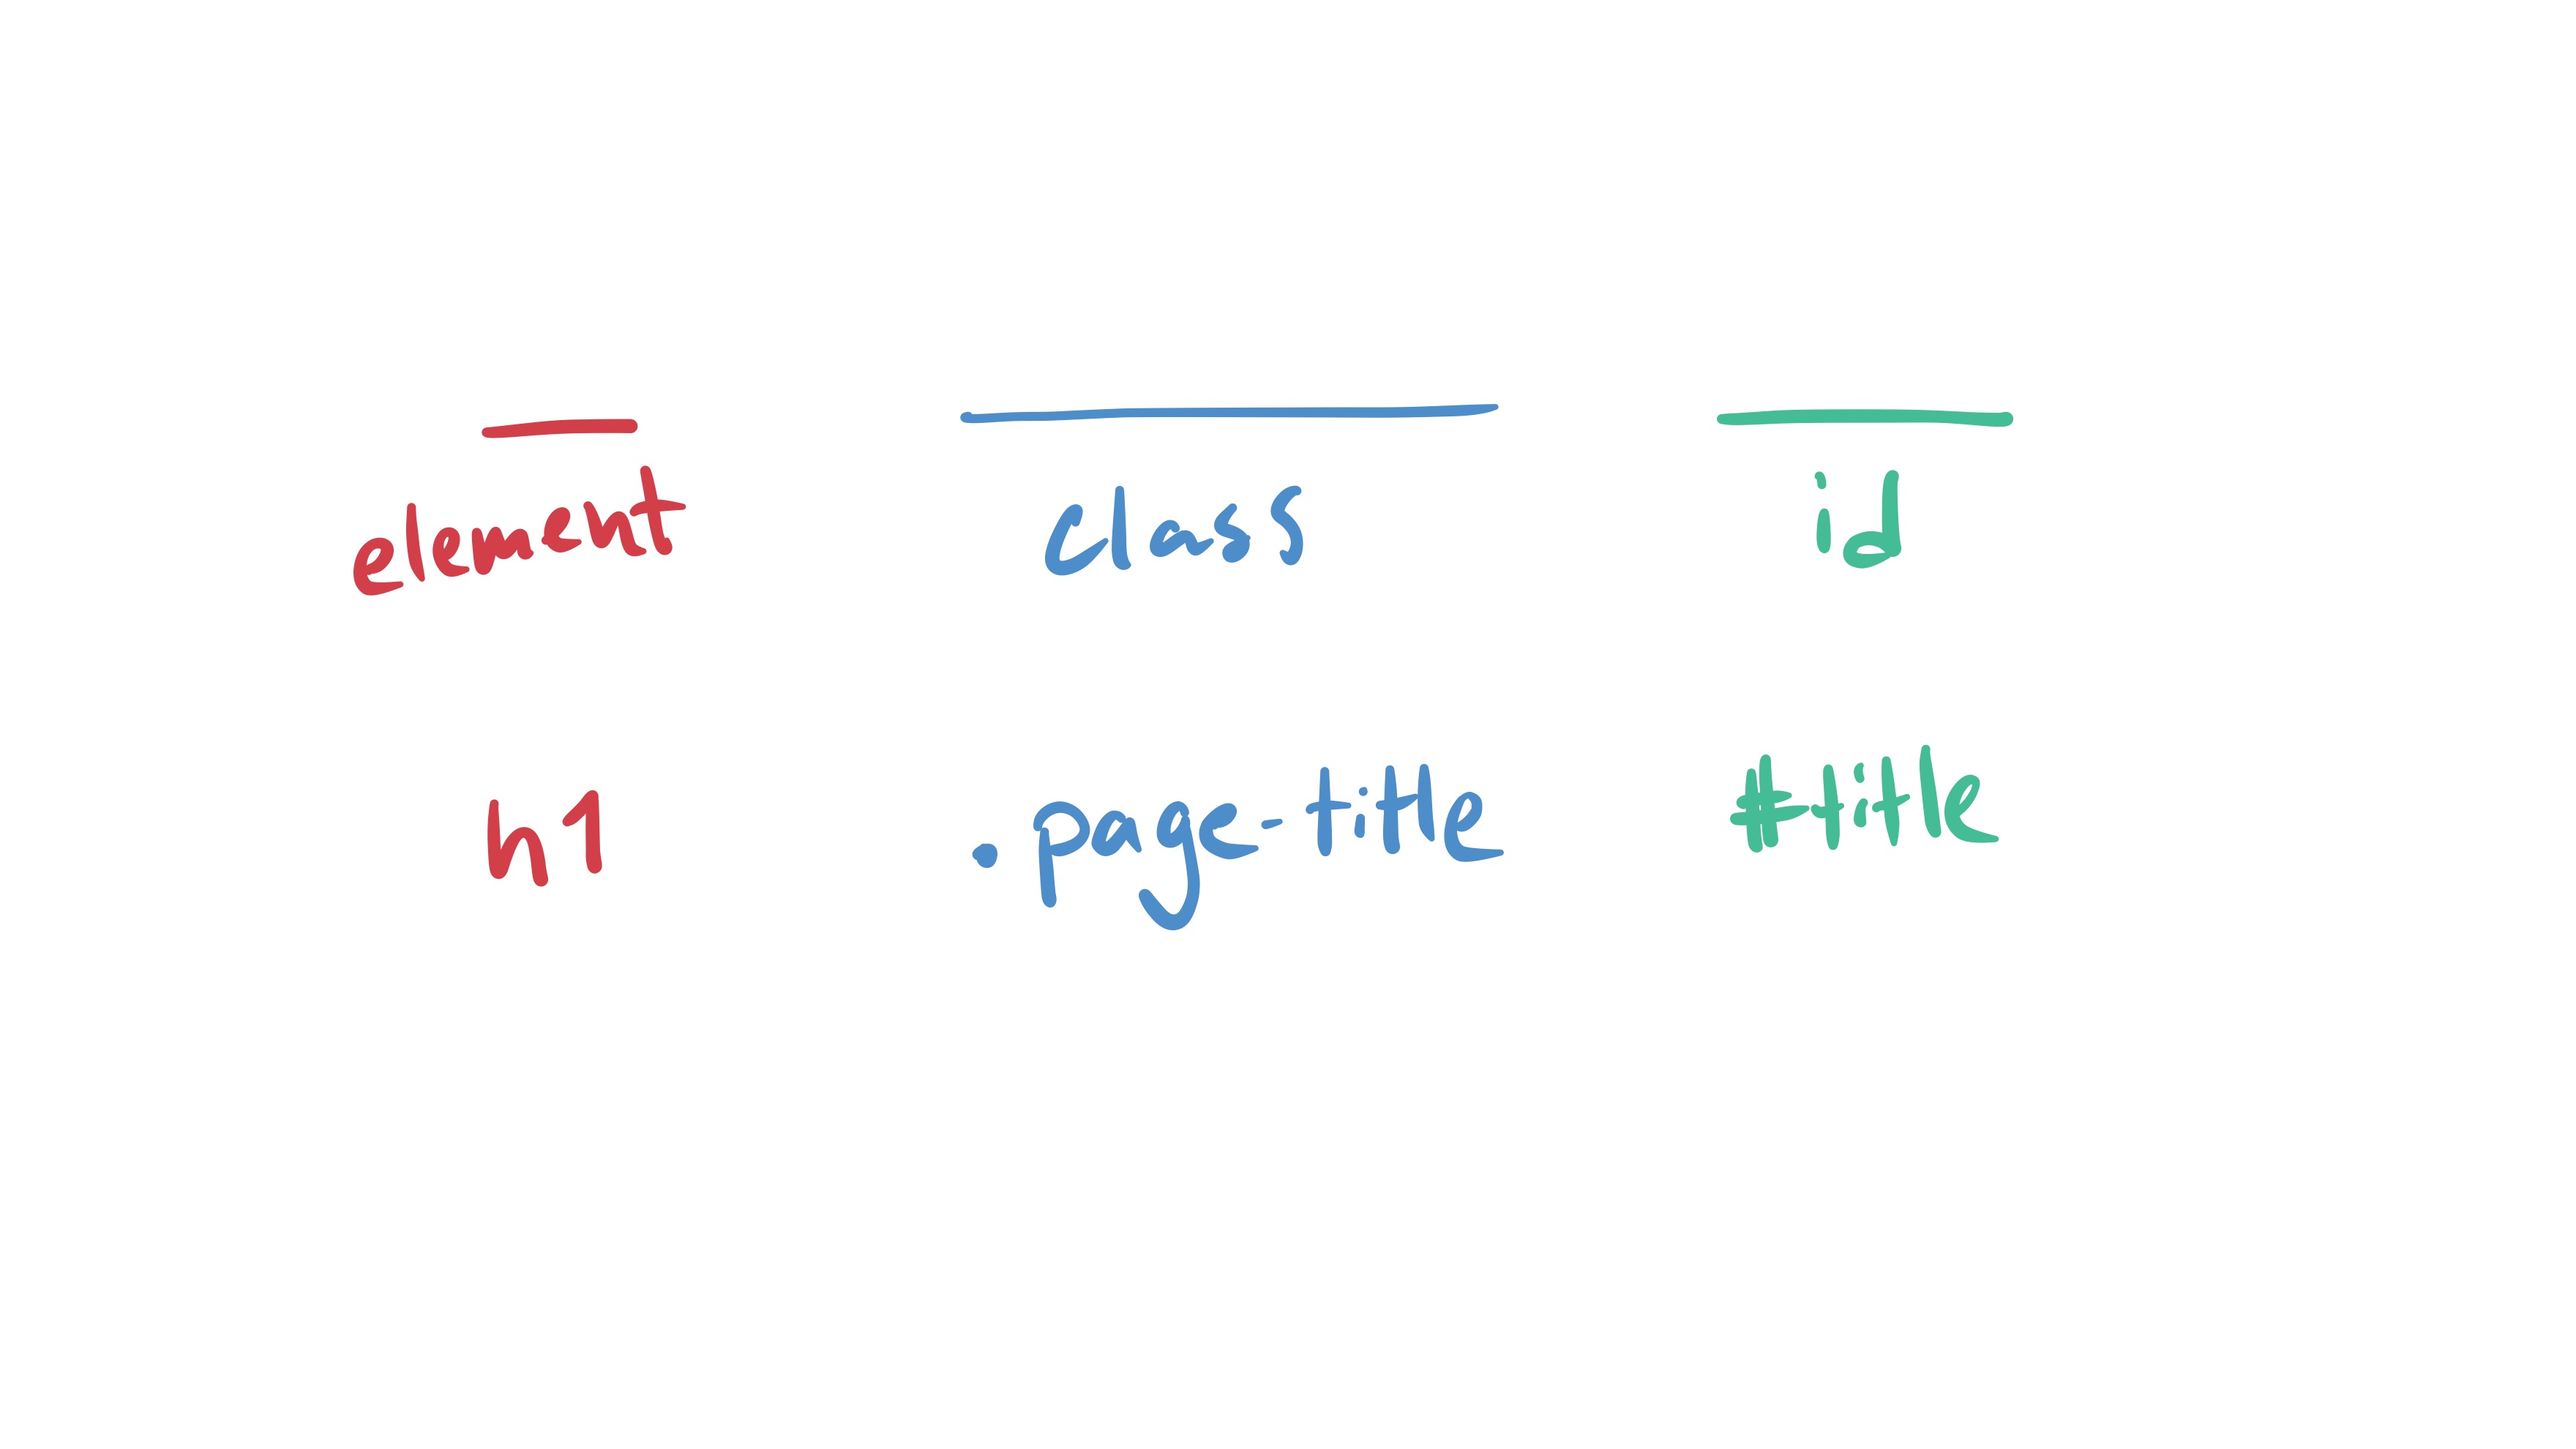 element class id
h1 .page-title #title